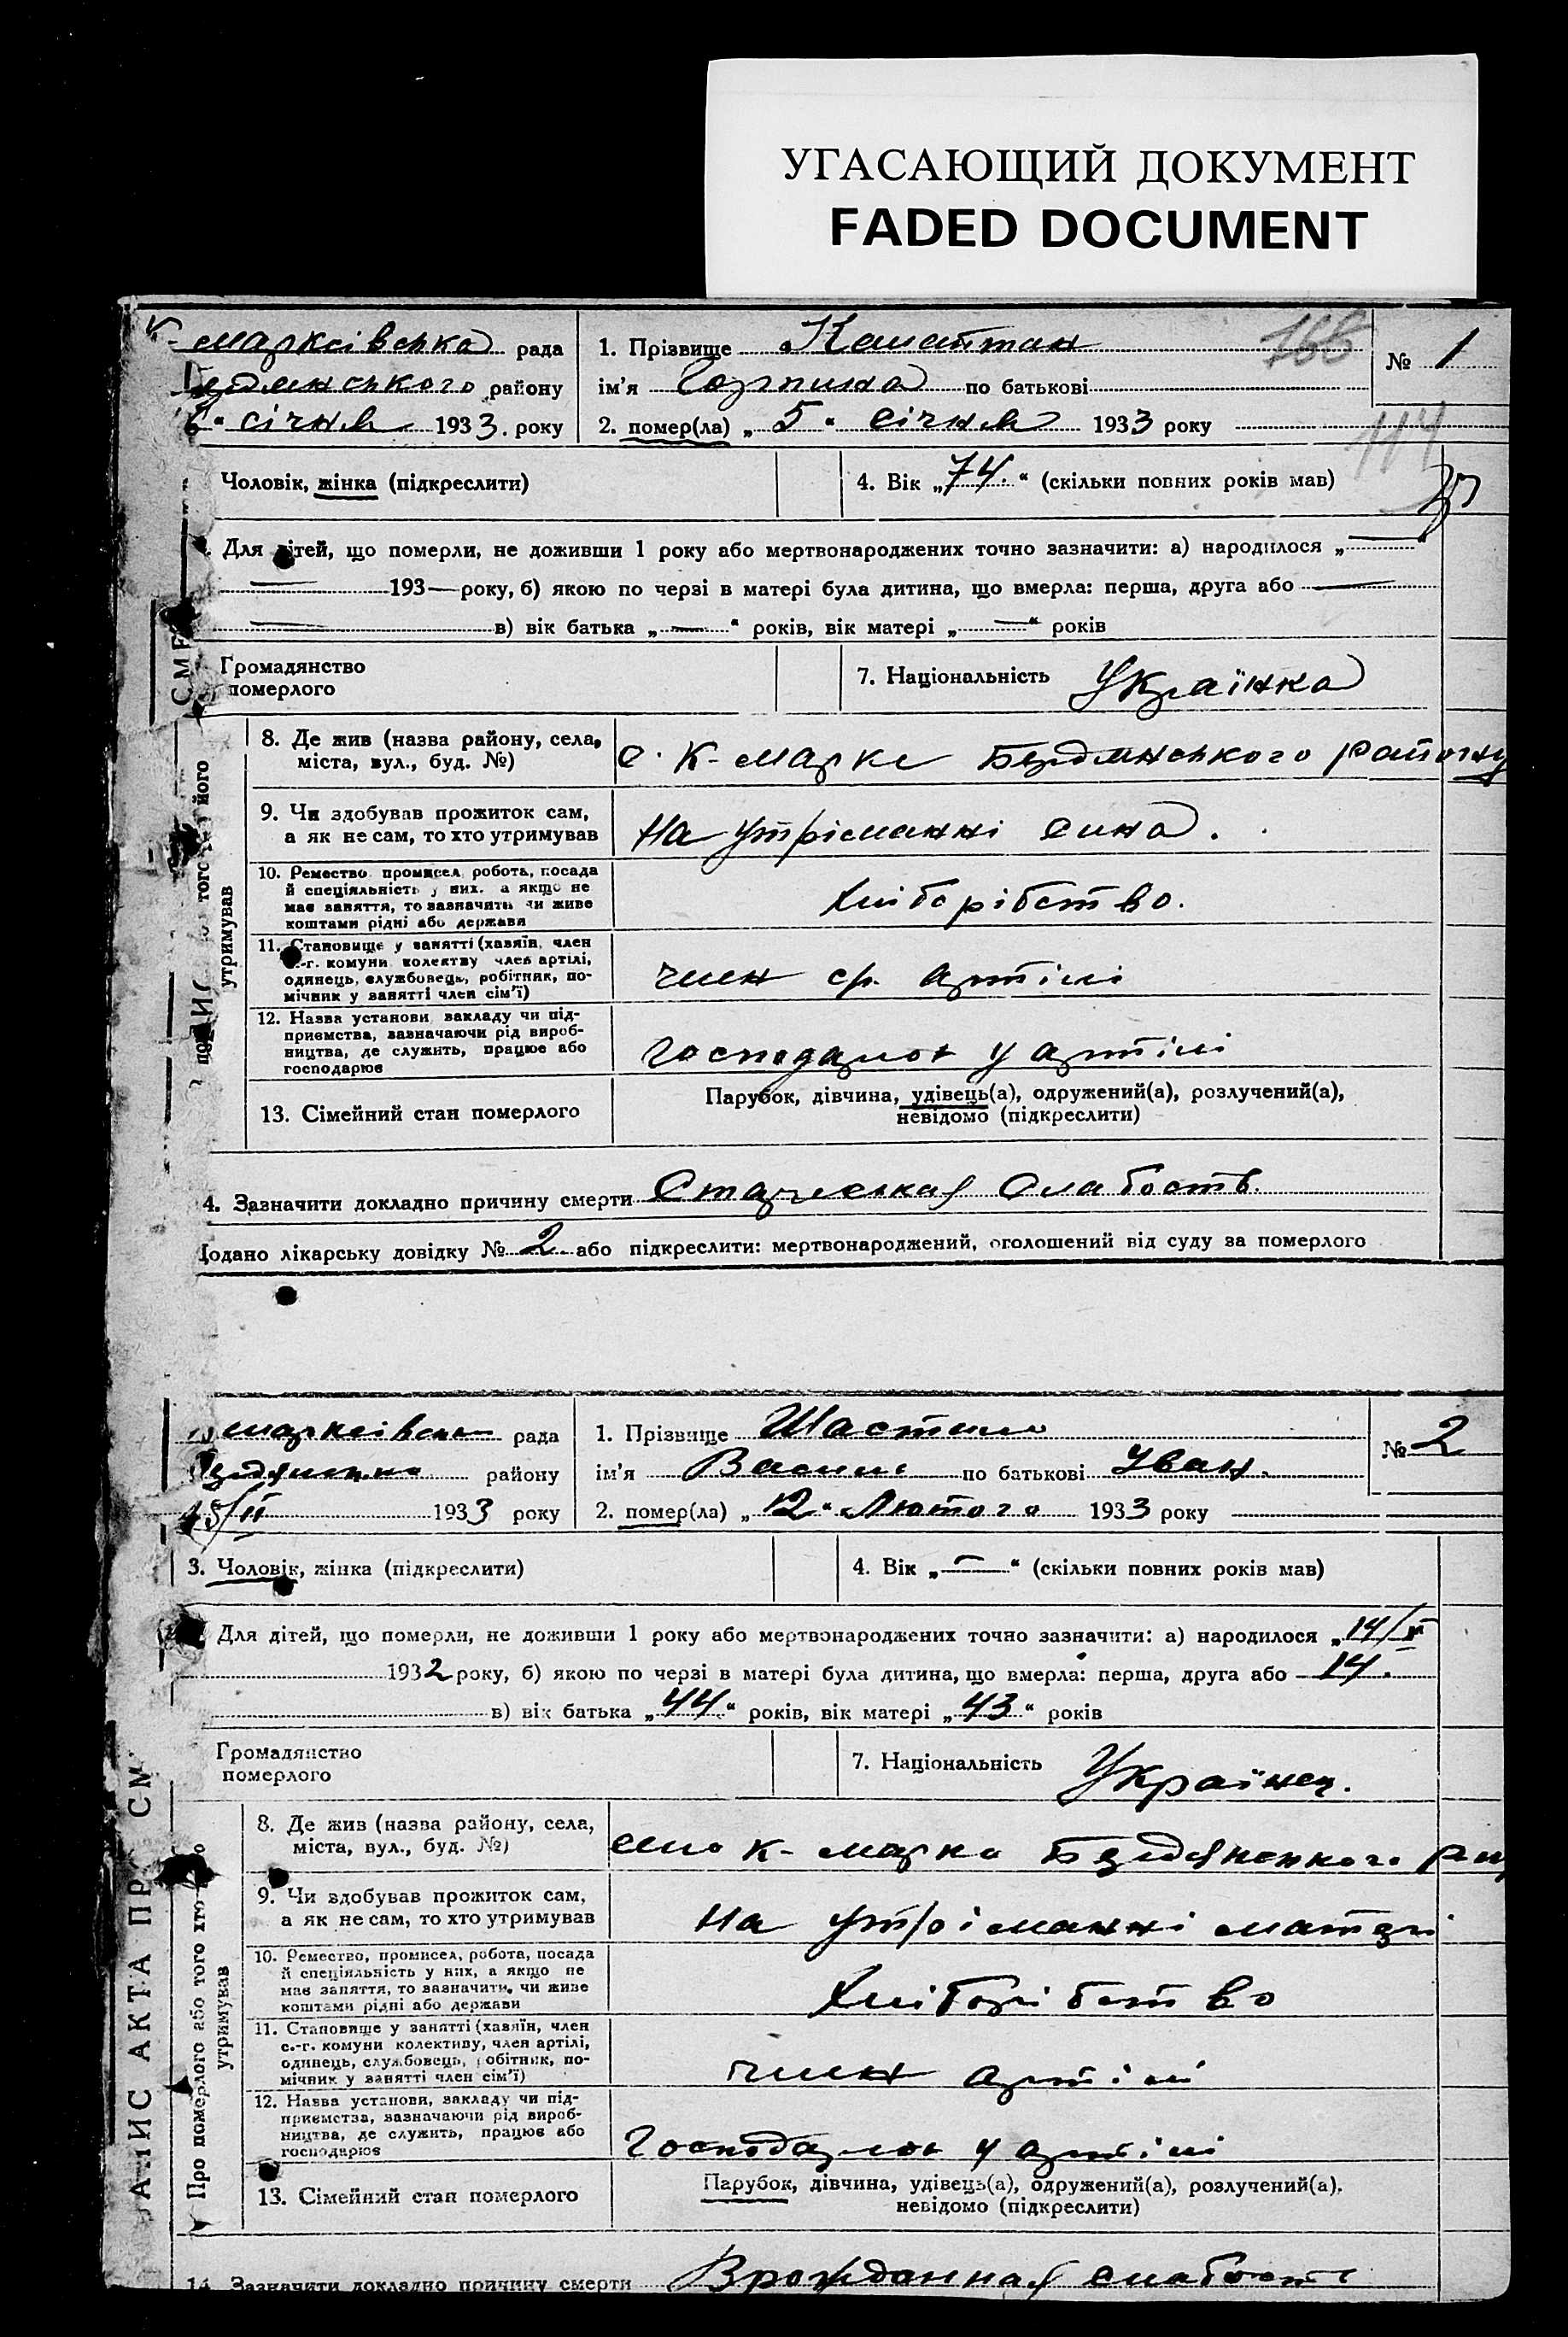 УГАСАЮЩИЙ ДОКУМЕНТ
FADED DOCUMENT
К-марксівська рада
Бердянського району
6 " січня 1933. року
1. Прізвище
ім'я Горпина по батькові
2. помер(ла) „ 5 " січня 1933 року
№ 1
166
114
Чоловік, жінка (підкреслити)
4. Вік „ 74. " (скільки повних років мав)
Для дітей, що померли, не доживши 1 року або мертвонароджених точно зазначити: а) народилося „ — "
— 193— року, б) якою по черзі в матері була дитина, що вмерла: перша, друга або —
— в) вік батька „ — " років, вік матері „ — " років
Громадянство
померлого
7. Національність Українка
8. Де жив (назва району, села,
міста, вул., буд. №)
с. К-Маркс Бердянського району
9. Чи здобував прожиток сам,
а як не сам, то хто утримував
на утріманні сина.
10. Ремество, промисел, робота, посада
й спеціяльність у них, а якщо не
має заняття, то зазначити чи живе
коштами рідні або держави
Хліборібство.
11. Становище у занятті (хазяїн, член
с.-г. комуни колективу член артілі,
одинець, службовець, робітник, по-
мічник у занятті член сім'ї)
член с/г. артілі
12. Назва установи, закладу чи під-
приємства, зазначаючи рід вироб-
ництва, де служить, працює або
господарює
Господарює у артілі
13. Сімейний стан померлого
Парубок, дівчина, удівець(а), одружений(а), розлучений(а),
невідомо (підкреслити)
4. Зазначити докладно причину смерти Старческая Слабость.
Додано лікарську довідку № 2 або підкреслити: мертвонароджений, оголошений від суду за померлого
того його
утримував
марксівська рада
району
15/II 1933 року
1. Прізвище Шастило
ім'я Василь по батькові Іван.
2. помер(ла) „ 12 " Лютого 1933 року
№ 2
3. Чоловік, жінка (підкреслити)
4. Вік „ — " (скільки повних років мав)
Для дітей, що померли, не доживши 1 року або мертвонароджених точно зазначити: а) народилося „ 14/
1932 року, б) якою по черзі в матері була дитина, що вмерла: перша, друга або 14.
в) вік батька „ 44 " років, вік матері „ 43 " років
Громадянство
померлого
7. Національність Українец.
8. Де жив (назва району, села,
міста, вул., буд. №)
село К-Маркс Бердянського
9. Чи здобував прожиток сам,
а як не сам, то хто утримував
на утріманні матері
10. Ремество, промисел, робота, посада
й спеціяльність у них, а якщо не
має заняття, то зазначити, чи живе
коштами рідні або держави
Хліборібство
11. Становище у занятті (хазяїн, член
с.-г. комуни колективу, член артілі,
одинець, службовець, робітник, по-
мічник у занятті член сім'ї)
член артілі
12. Назва установи, закладу чи під-
приємства, зазначаючи рід вироб-
ництва, де служить, працює або
господарює
Господарює у артілі
13. Сімейний стан померлого
Парубок, дівчина, удівець(а), одружений(а), розлучений(а),
невідомо (підкреслити)
14. Зазначити докладно причину смерти Врожданная слабость
АПИС АКТА ПРО СМ
Про померлого або того хто його
утримував